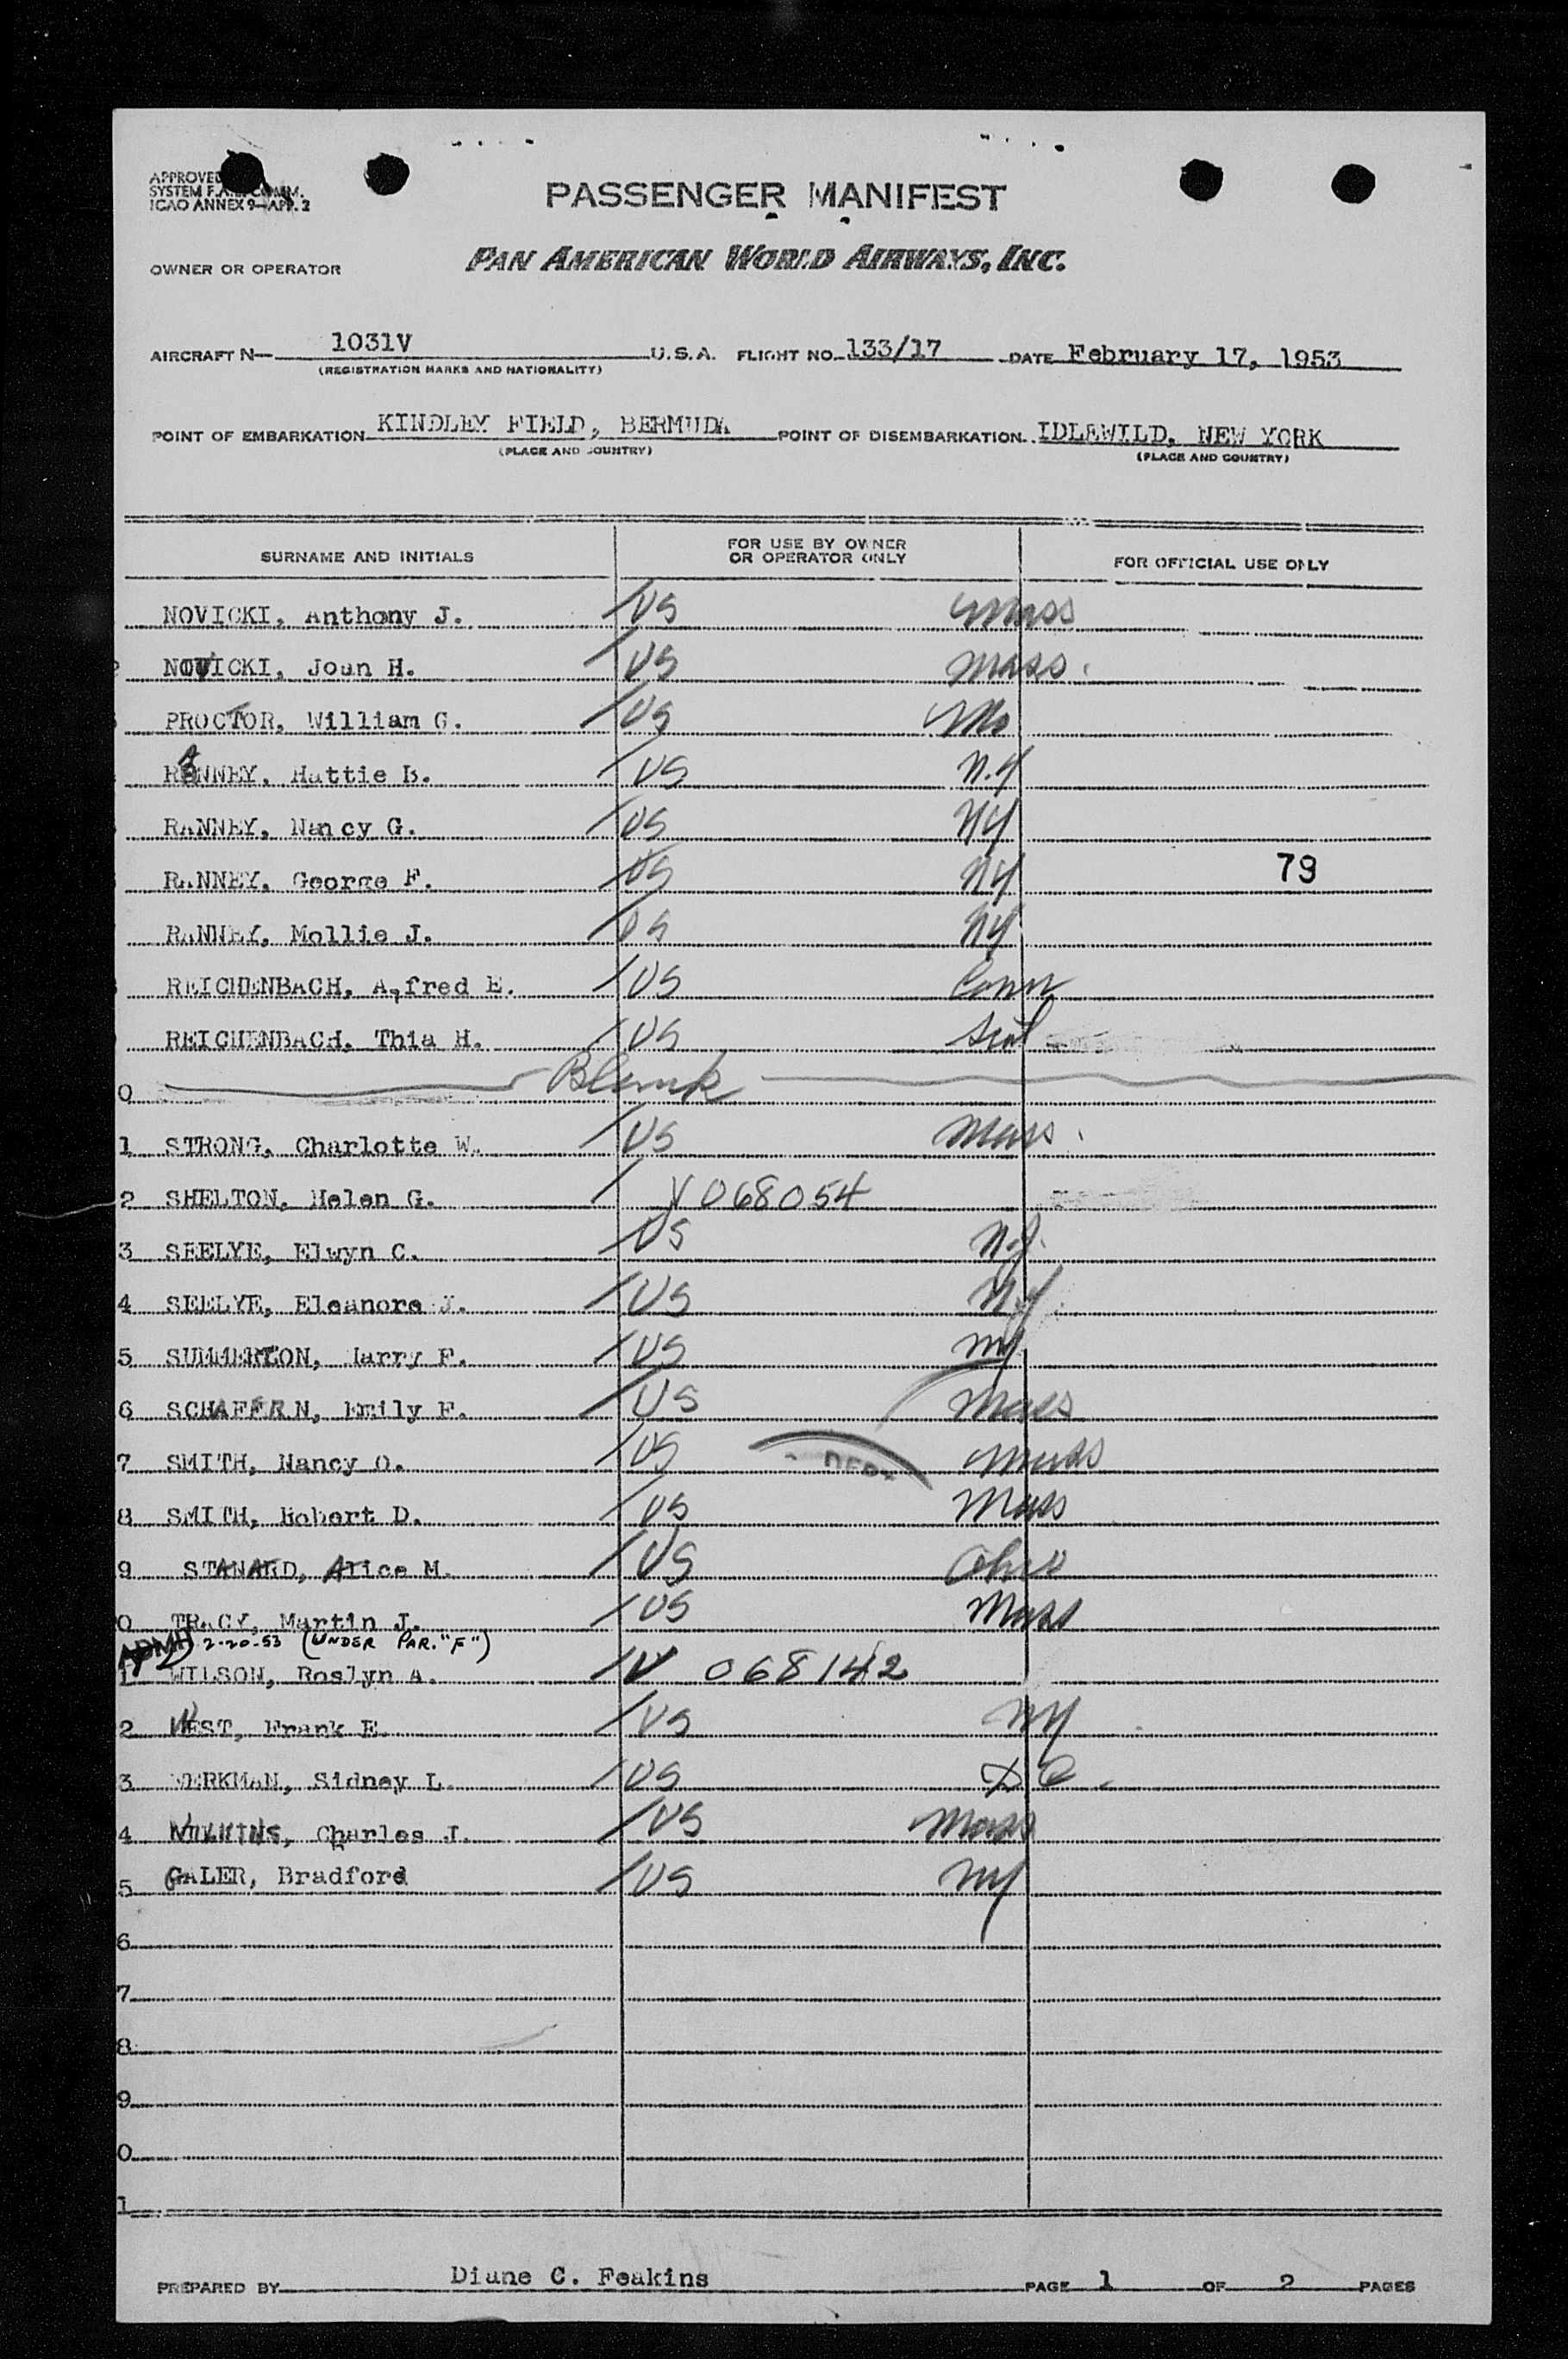 APPROVED
SYSTEM F. COMM.
ICAO ANNEX 9—APP. 2
PASSENGER MANIFEST
OWNER OR OPERATOR PAN AMERICAN WORLD AIRWAYS, INC.
AIRCRAFT N— 1031V U.S.A. FLIGHT NO. 133/17 DATE February 17, 1953
(REGISTRATION MARKS AND NATIONALITY)
POINT OF EMBARKATION KINDLEY FIELD, BERMUDA POINT OF DISEMBARKATION IDLEWILD, NEW YORK
(PLACE AND COUNTRY) (PLACE AND COUNTRY)
SURNAME AND INITIALS FOR USE BY OWNER OR OPERATOR ONLY FOR OFFICIAL USE ONLY
NOVICKI, Anthony J. US Mass
NOVICKI, Joan H. US Mass.
PROCTOR, William G. US Mo
RANNEY, Hattie B. US N.Y
RANNEY, Nancy G. US NY
RANNEY, George F. US NY 79
RANNEY, Mollie J. US NY
REICHENBACH, A,fred E. US Conn
REICHENBACH, Thia H. US
0 Blank
1 STRONG, Charlotte W. US Mass.
2 SHELTON, Helen G. V 068054
3 SEELYE, Elwyn C. US N.Y.
4 SEELYE, Eleanore J. US N.Y.
5 SUMMERTON, Harry F. US NY
6 SCHAFFRN, Emily F. US Mass
7 SMITH, Nancy O. US Mass
DEPT
8 SMITH, Robert D. US Mass
9 STANARD, Alice M. US Ohio
0 TRACY, Martin J. US Mass
ADMD 2-20-53 (UNDER PAR. "F")
1 WILSON, Roslyn A. V 068142
2 WEST, Frank E. US NY
3 WERKMAN, Sidney L. US DC
4 WILKINS, Charles J. US Mass
5 GALER, Bradford US NY
6
7
8
9
0
1
PREPARED BY Diane C. Feakins PAGE 1 OF 2 PAGES